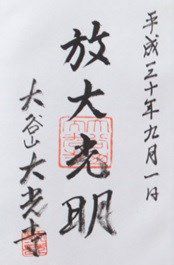 平成三十年九月一日
放大光明
大谷山大光寺